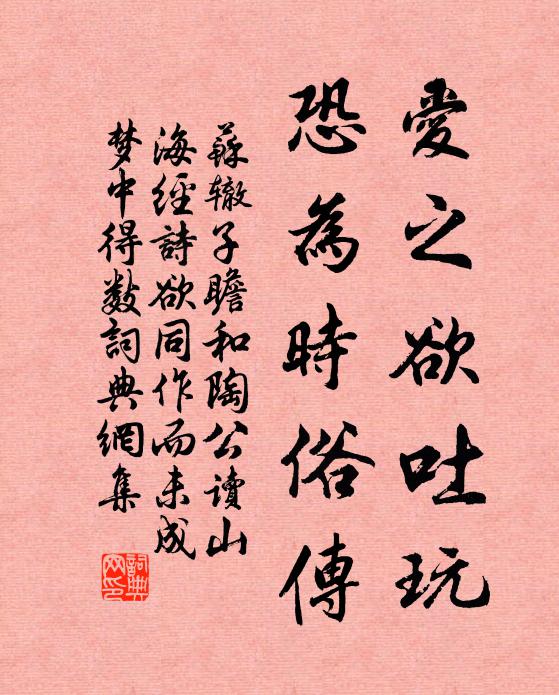 愛之欲吐玩
恐為時俗傳
蘇辙子瞻和陶公讀山
海經詩欲同作而未成
梦中得数詞典網集
詞典
网印